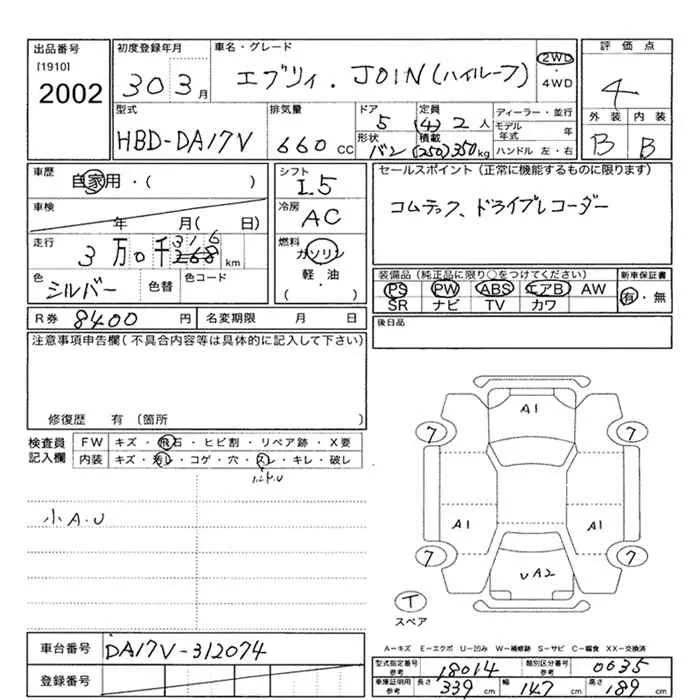 出品番号 初度登録年月 車名・グレード 2WD・4WD 評価点
[1910]
2002 30 3月 エブリィ・JOIN(ハイルーフ) 4
型式 排気量 ドア 定員 ディーラー・並行 外装 内装
HBD-DA17V 660CC 5 (4) 2人 モデル年式 年 B B
形状 積載 ハンドル 左・右
バン (250) 350kg
車歴 自家用・( ) シフト セールスポイント(正常に機能するものに限ります)
I.5
車検 年 月( 日) 冷房 コムテック、ドライブレコーダー
AC
走行 3万0千316 km 燃料
268
ガソリン
軽・油
( )
色 シルバー 色替 色コード
装備品(純正品に限り○をつけてください) 新車保証書
PS PW ABS エアB AW 有・無
SR ナビ TV カワ
R券 8400円 名変期限 月 日 後日品
注意事項申告欄(不具合内容等は具体的に記入して下さい)
修復歴 有(箇所 )
検査員記入欄 FW キズ・飛石・ヒビ割・リペア跡・X要
内装 キズ・汚レ・コゲ・穴・スレ・キレ・破レ
小A.U
A1
7 7
A1 A1
7 7
UA2
T
スペア
車台番号 DA17V-312074
登録番号
A-キズ E-エクボ U-凹み W-補修跡 S-サビ C-腐食 XX-交換済
型式指定番号 参考 18014 類別区分番号 参考 0635
車庫証明用 参考 長さ 339cm 幅 147cm 高さ 189cm